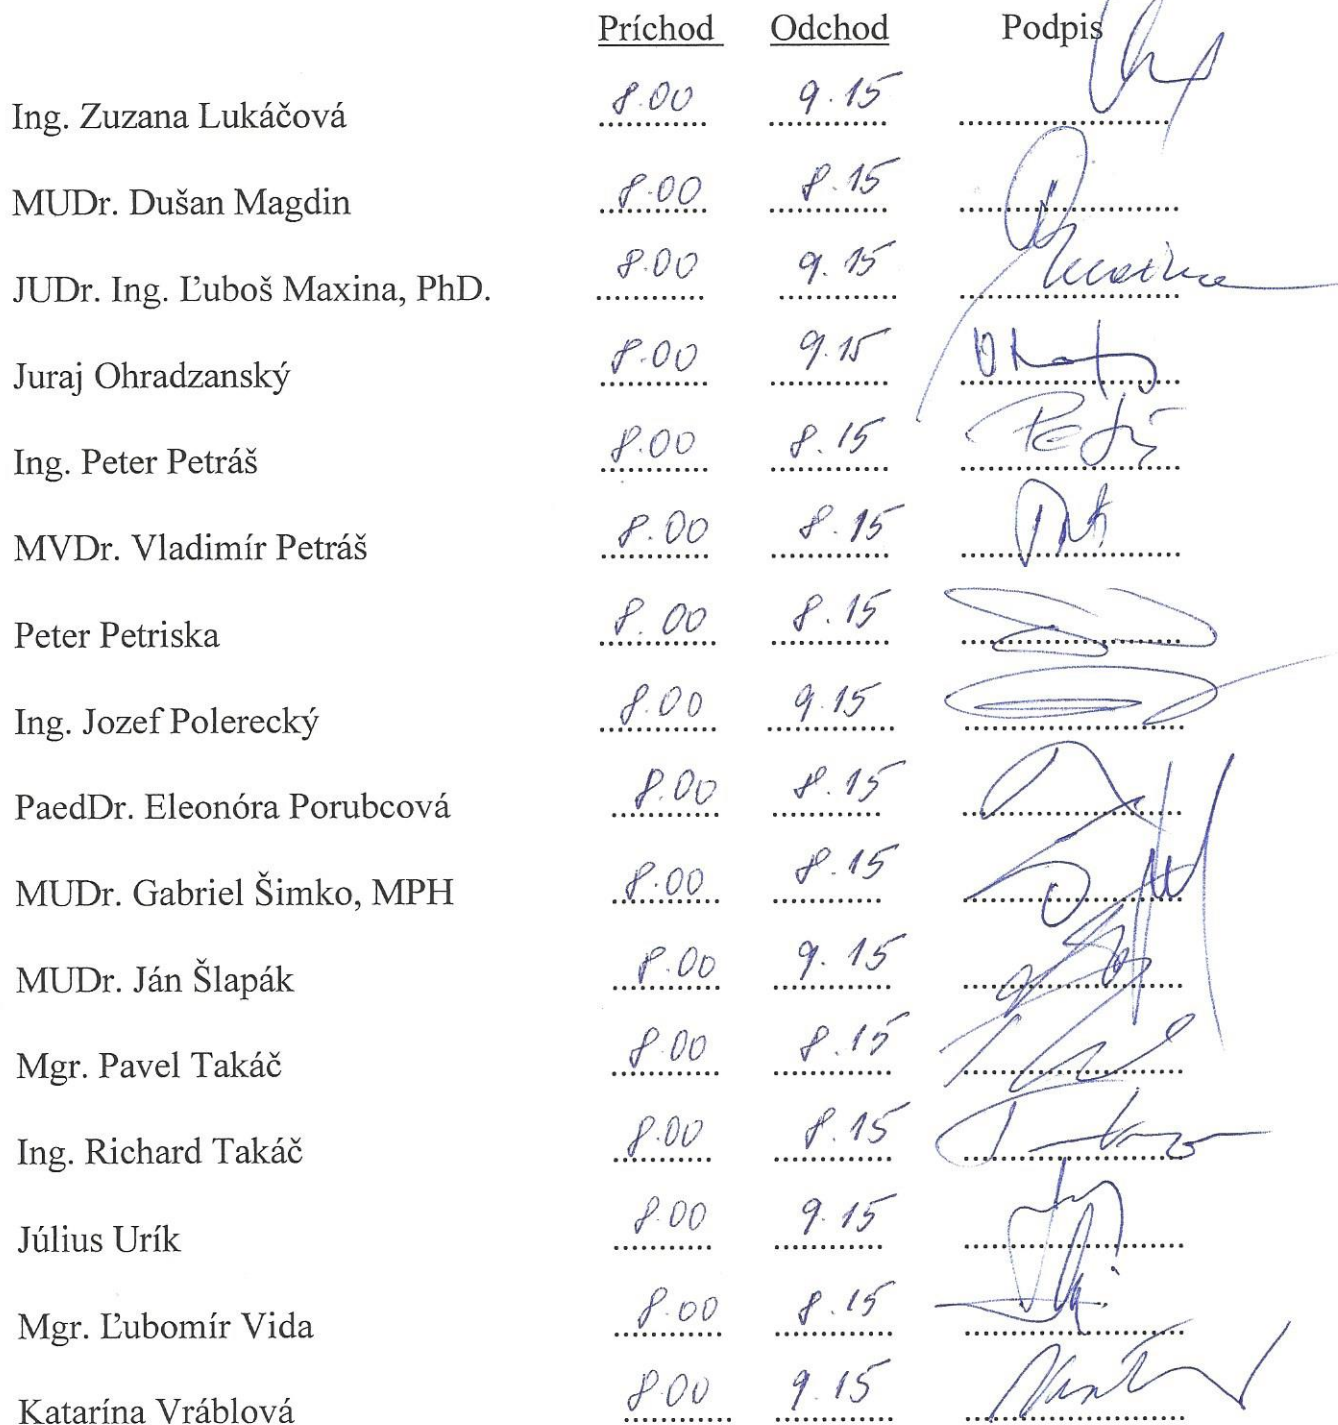 Príchod Odchod Podpis
Ing. Zuzana Lukáčová 8.00 9.15
MUDr. Dušan Magdin 8.00 8.15
JUDr. Ing. Ľuboš Maxina, PhD. 8.00 9.15
Juraj Ohradzanský 8.00 9.15
Ing. Peter Petráš 8.00 8.15
MVDr. Vladimír Petráš 8.00 8.15
Peter Petriska 8.00 8.15
Ing. Jozef Polerecký 8.00 9.15
PaedDr. Eleonóra Porubcová 8.00 8.15
MUDr. Gabriel Šimko, MPH 8.00 8.15
MUDr. Ján Šlapák 8.00 9.15
Mgr. Pavel Takáč 8.00 8.15
Ing. Richard Takáč 8.00 8.15
Július Urík 8.00 9.15
Mgr. Ľubomír Vida 8.00 8.15
Katarína Vráblová 8.00 9.15